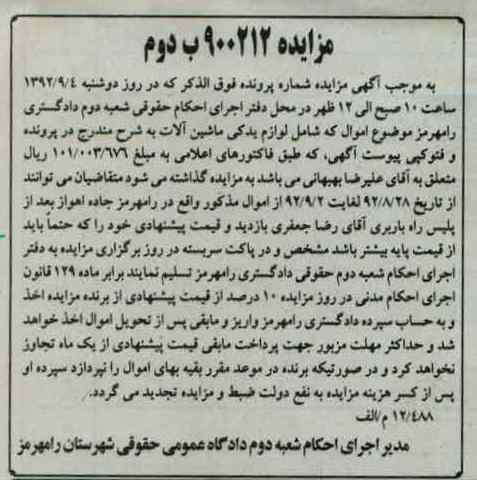 مزایده ۹۰۰۲۱۲ ب دوم
به موجب آگهی مزایده شماره پرونده فوق الذکر که در روز دوشنبه ۱۳۹۲/۹/۴
ساعت ۱۰ صبح الی ۱۲ ظهر در محل دفتر اجرای احکام حقوقی شعبه دوم دادگستری
رامهرمز موضوع اموال که شامل لوازم یدکی ماشین آلات به شرح مندرج در پرونده
و فتوکپی پیوست آگهی، که طبق فاکتورهای اعلامی به مبلغ ۱۰۱/۰۰۳/۶۷۶ ریال
متعلق به آقای علیرضا بهبهانی می باشد به مزایده گذاشته می شود متقاضیان می توانند
از تاریخ ۹۲/۸/۲۸ لغایت ۹۲/۹/۲ از اموال مذکور واقع در رامهرمز جاده اهواز بعد از
پلیس راه باربری آقای رضا جعفری بازدید و قیمت پیشنهادی خود را که حتماً باید
از قیمت پایه بیشتر باشد مشخص و در پاکت سربسته در روز برگزاری مزایده به دفتر
اجرای احکام شعبه دوم حقوقی دادگستری رامهرمز تسلیم نمایند برابر ماده ۱۲۹ قانون
اجرای احکام مدنی در روز مزایده ۱۰ درصد از قیمت پیشنهادی از برنده مزایده اخذ
و به حساب سپرده دادگستری رامهرمز واریز و مابقی پس از تحویل اموال اخذ خواهد
شد و حداکثر مهلت مزبور جهت پرداخت مابقی قیمت پیشنهادی از یک ماه تجاوز
نخواهد کرد و در صورتیکه برنده در موعد مقرر بقیه بهای اموال را نپردازد سپرده او
پس از کسر هزینه مزایده به نفع دولت ضبط و مزایده تجدید می گردد.
۱۲/۴۸۸ م/الف
مدیر اجرای احکام شعبه دوم دادگاه عمومی حقوقی شهرستان رامهرمز